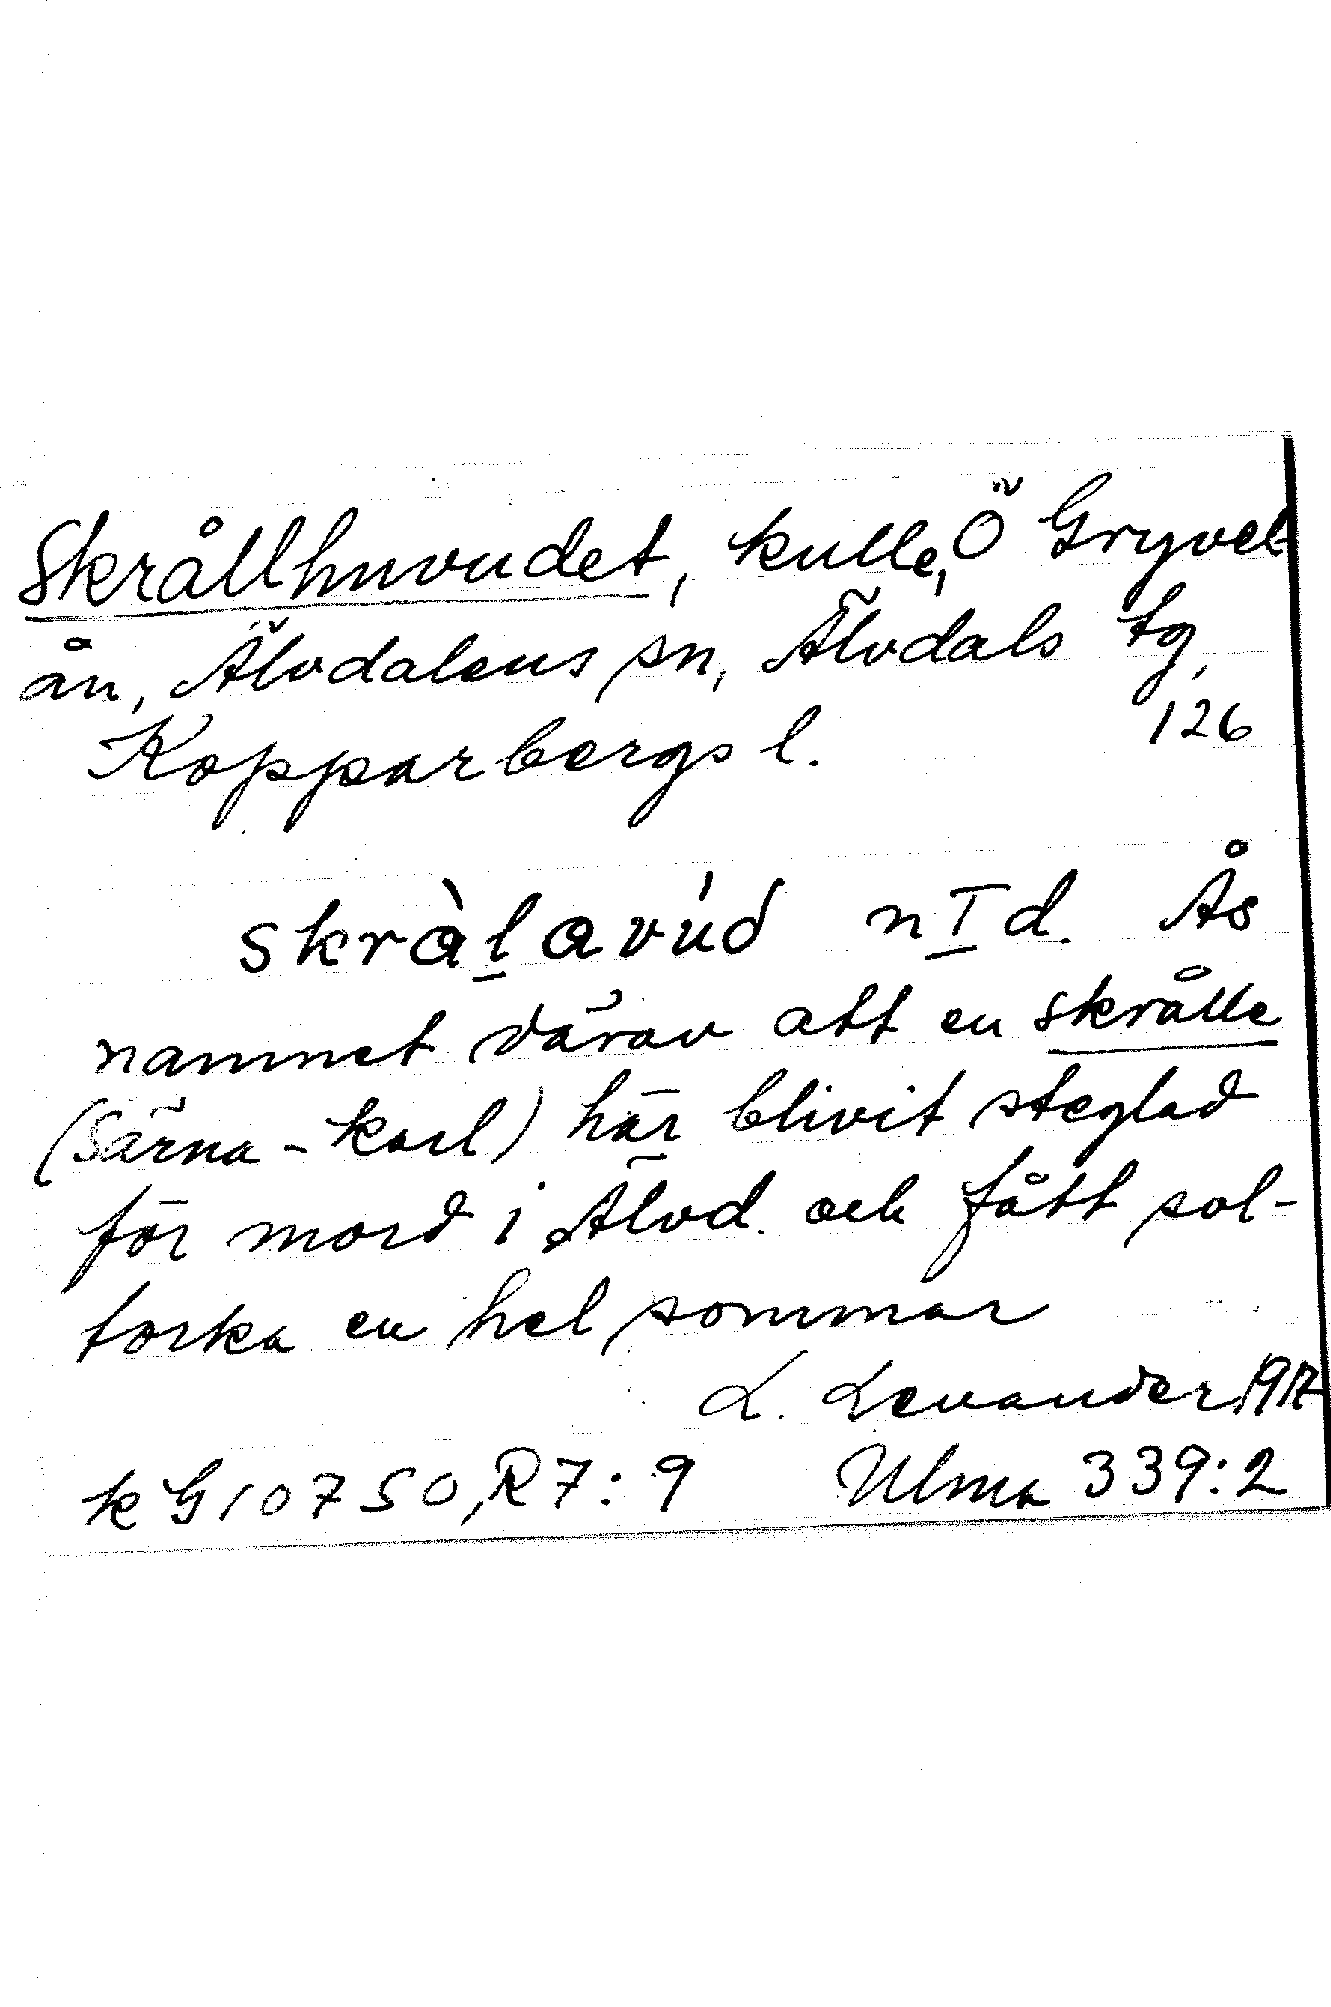 Skrållhuvudet, kulle, Ö Gryvel-
ån, Älvdalens sn, Älvdals tg,
Kopparbergs l. 126
skràḷavúd n I d. Ås
namnet därav att en skrålle
(Särna-karl) här blivit steglad
för mord i Älvd. och fått sol-
torka en hel sommar
L. Levander 1917
kG 10750, R7:9 Ulma 339:2